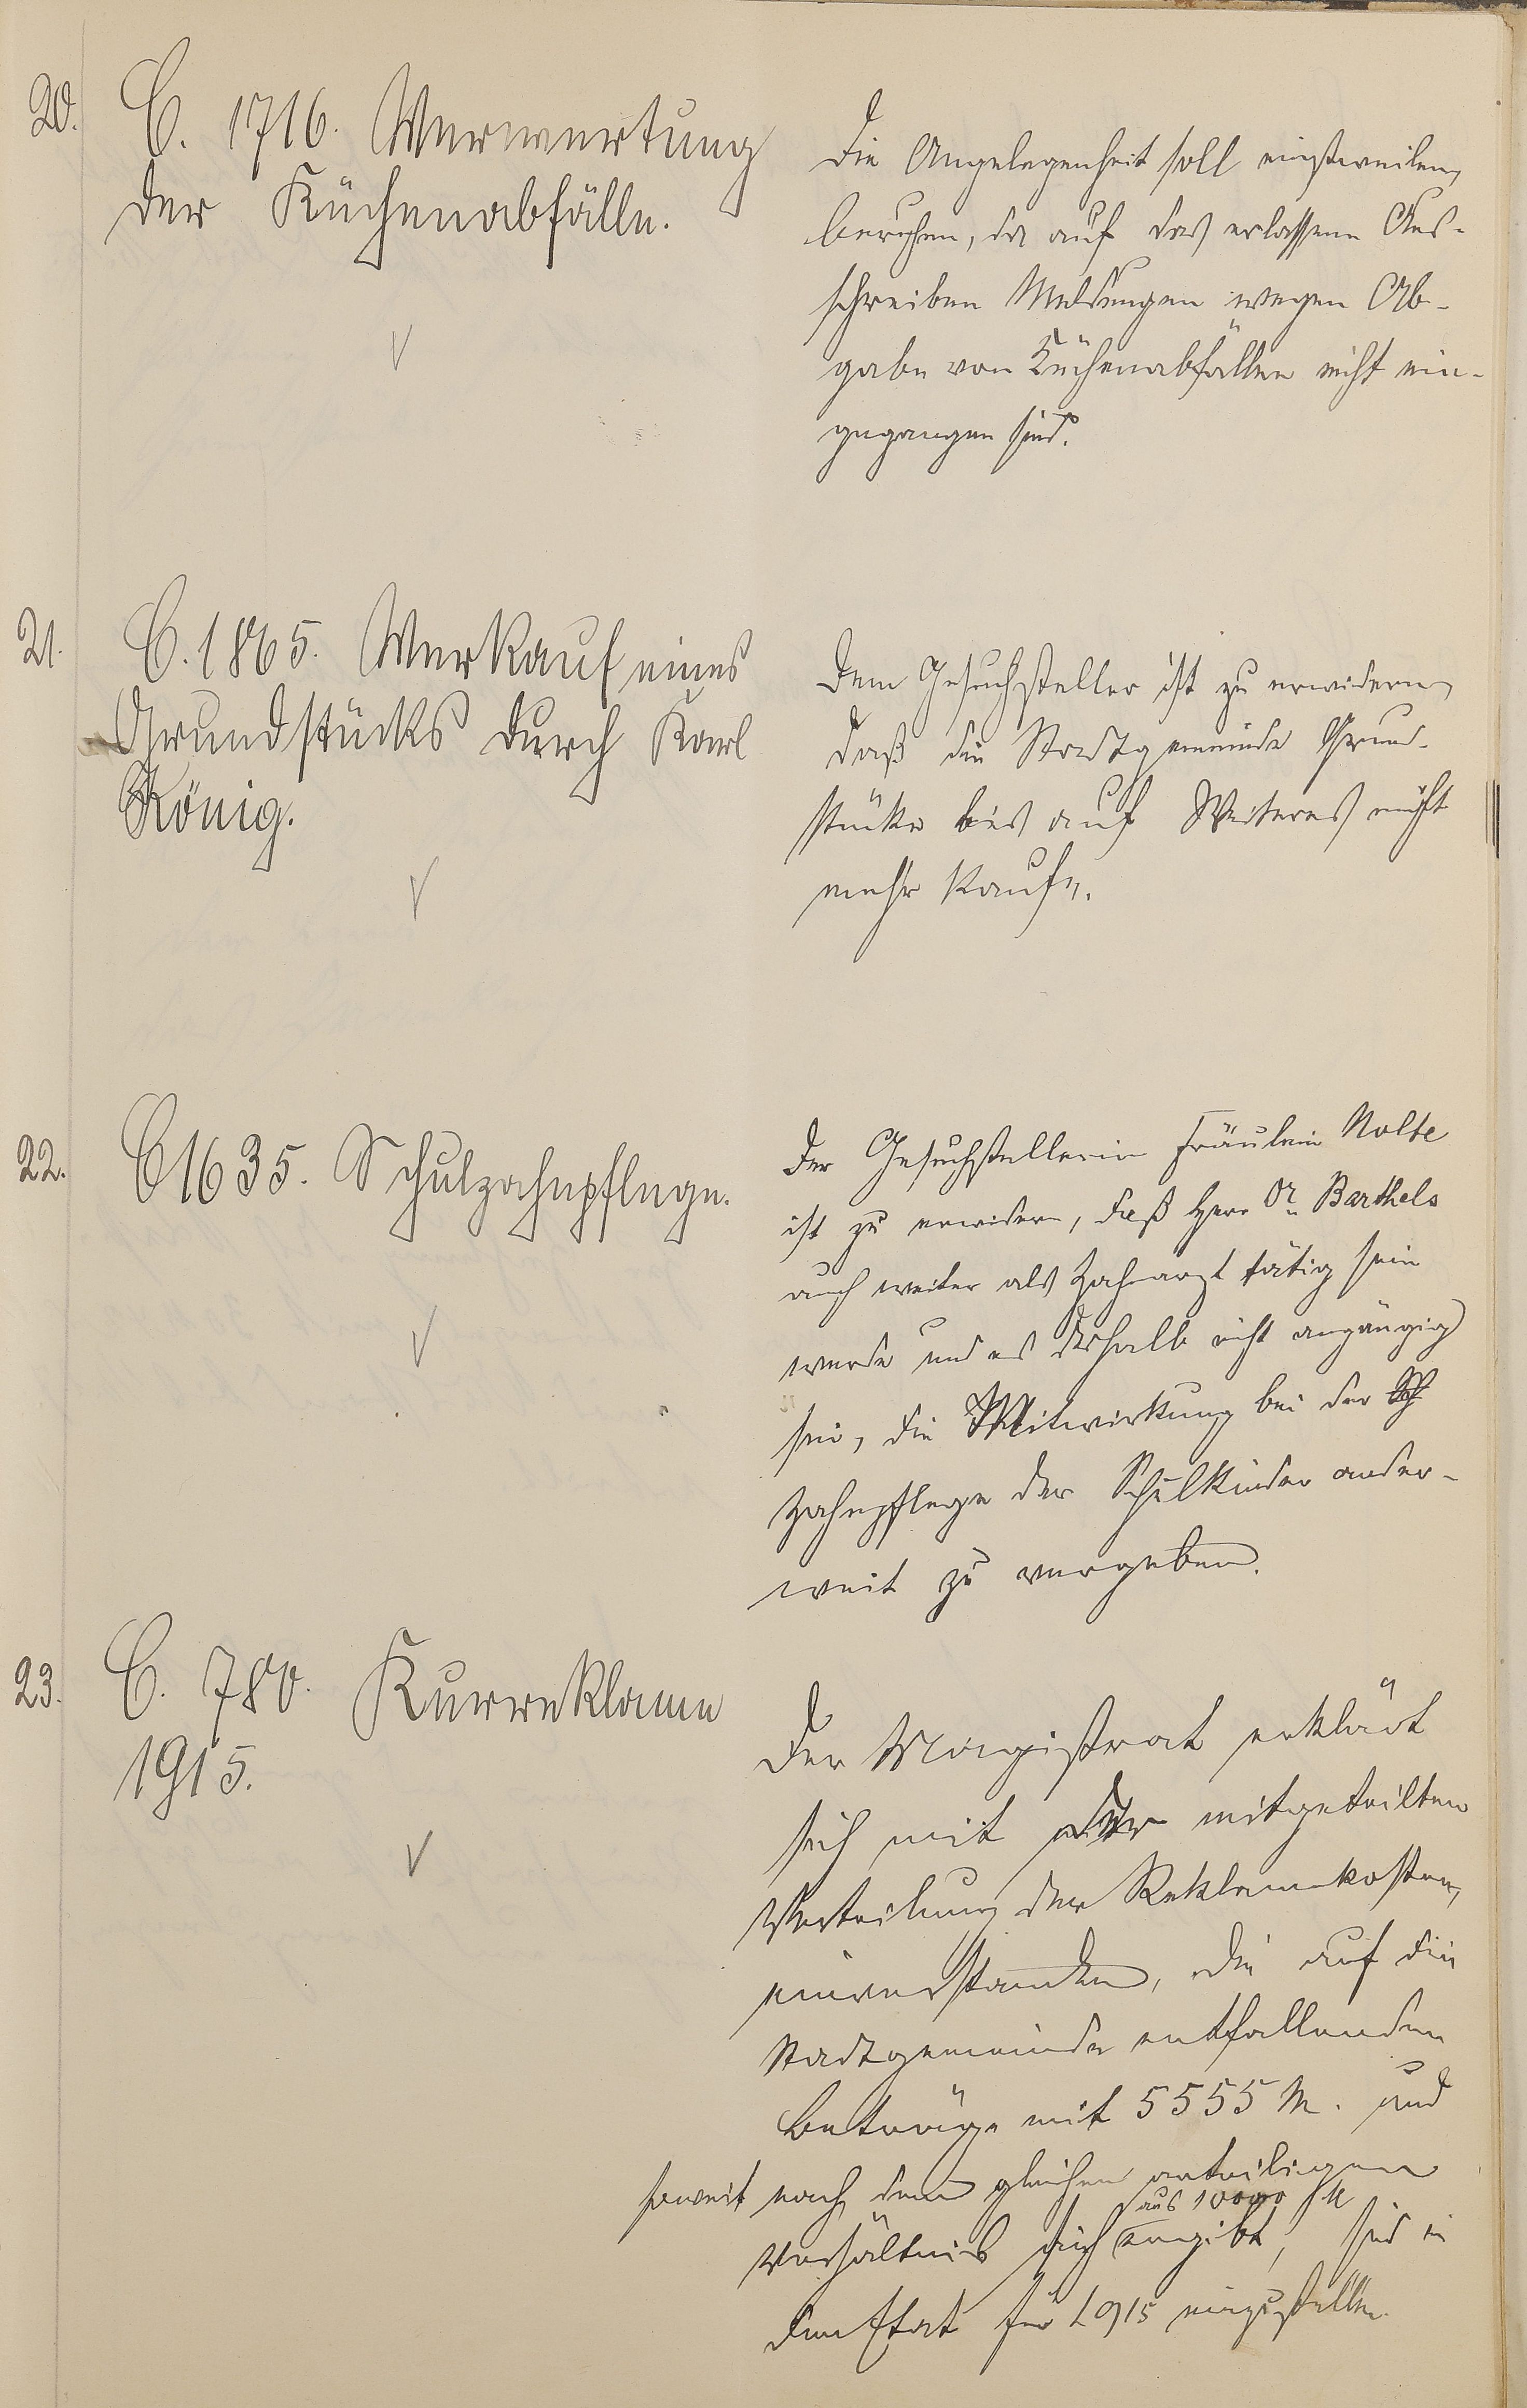 20. C. 1716. Verwertung
der Küchenabfälle.
Die Angelegenheit soll einstweilen
beruhen, da auf das erlassene Aus-
schreiben Meldungen wegen Ab-
gabe von Küchenabfällen nicht ein-
gegangen sind.
21. C. 1865. Verkauf eines
Grundstücks durch Karl
König.
Dem Gesuchsteller ist zu erwidern,
daß die Stadtgemeinde Grund-
stücke bis auf Weiteres nicht
mehr kaufe.
22. C 1635. Schulzahnpflege.
Der Gesuchstellerin Fräulein Nolte
ist zu erwidern, daß Herr Dr. Barthels
auch weiter als Zahnarzt tätig sein
werde und es deshalb nicht angängig
sei, die Mitwirkung bei der Sch
Zahnpflege der Schulkinder ander-
weit zu vergeben.
23. C. 780. Kurreklame
1915.
Der Magistrat erklärt
sich mit der mitgeteilten
Verteilung der Reklamekosten
einverstanden, die auf die
Stadtgemeinde entfallenden
Beträge mit 5555 M. und
soweit nach dem gleichen anteiligen
aus 10000 M
Verhältnis sich ergibt, sind in
den Etat für 1915 einzustellen.